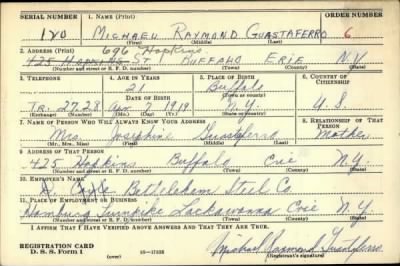 SERIAL NUMBER 1. NAME (Print) ORDER NUMBER
120 MICHAEL RAYMOND GUASTAFERRO 6
(First) (Middle) (Last)
696 Hopkins
2. ADDRESS (Print)
425 HOPKINS ST BUFFALO ERIE N.Y.
(Number and street or R. F. D. number) (Town) (County) (State)
3. TELEPHONE 4. AGE IN YEARS 5. PLACE OF BIRTH 6. COUNTRY OF CITIZENSHIP
21 Buffalo
DATE OF BIRTH (Town or county)
TR. 2728 7 1919 N.Y. U.S.
(Exchange) (Number) (Mo.) (Day) (Yr.) (State or country)
7. NAME OF PERSON WHO WILL ALWAYS KNOW YOUR ADDRESS 8. RELATIONSHIP OF THAT PERSON
Mrs. Josephine Guastaferro Mother
(Mr., Mrs., Miss) (First) (Middle) (Last)
9. ADDRESS OF THAT PERSON
425 Hopkins Buffalo Erie N.Y.
(Number and street or R. F. D. number) (Town) (County) (State)
10. EMPLOYER'S NAME
Bethleham Steel Co.
11. PLACE OF EMPLOYMENT OR BUSINESS
Hamburg Turnpike Lackawanna Erie N.Y.
(Number and street or R. F. D. number) (Town) (County) (State)
I AFFIRM THAT I HAVE VERIFIED ABOVE ANSWERS AND THAT THEY ARE TRUE.
REGISTRATION CARD
D. S. S. Form 1 16—17105 Michael Raymond Guastaferro
(Registrant's signature)